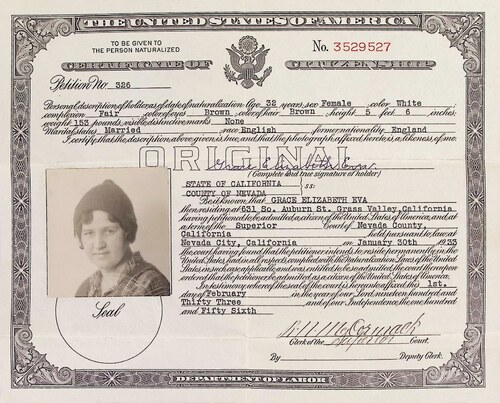 THE UNITED STATES OF AMERICA
TO BE GIVEN TO
THE PERSON NATURALIZED
No. 3529527
CERTIFICATE OF CITIZENSHIP
Petition No. 326
Personal description of holder as of date of naturalization: Age 32 years, sex Female color White
complexion Fair color of eyes Brown color of hair Brown height 5 feet 6 inches;
weight 153 pounds, visible distinctive marks None
Marital status Married race English former nationality England
I certify that the description above given is true, and that the photograph affixed hereto is a likeness of me.
ORIGINAL
Grace Elizabeth Eva
(Complete and true signature of holder)
STATE OF CALIFORNIA
COUNTY OF NEVADA } ss:
Be it known, that GRACE ELIZABETH EVA
then residing at 631, So. Auburn St. Grass Valley, California
having petitioned to be admitted a citizen of the United States of America, and at
a term of the Superior Court of Nevada County,
California held pursuant to law at
Nevada City, California on January 30th 1933
the court having found that the petitioner intends to reside permanently in the
United States, had in all respects complied with the Naturalization Laws of the United
States in such case applicable, and was entitled to be so admitted, the court thereupon
ordered that the petitioner be admitted as a citizen of the United States of America.
In testimony whereof the seal of the court is hereunto affixed this 1st.
day of February in the year of our Lord nineteen hundred and
Thirty Three and of our Independence the one hundred
and Fifty Sixth
Seal
Clerk of the Superior Court.
By Deputy Clerk.
DEPARTMENT OF LABOR